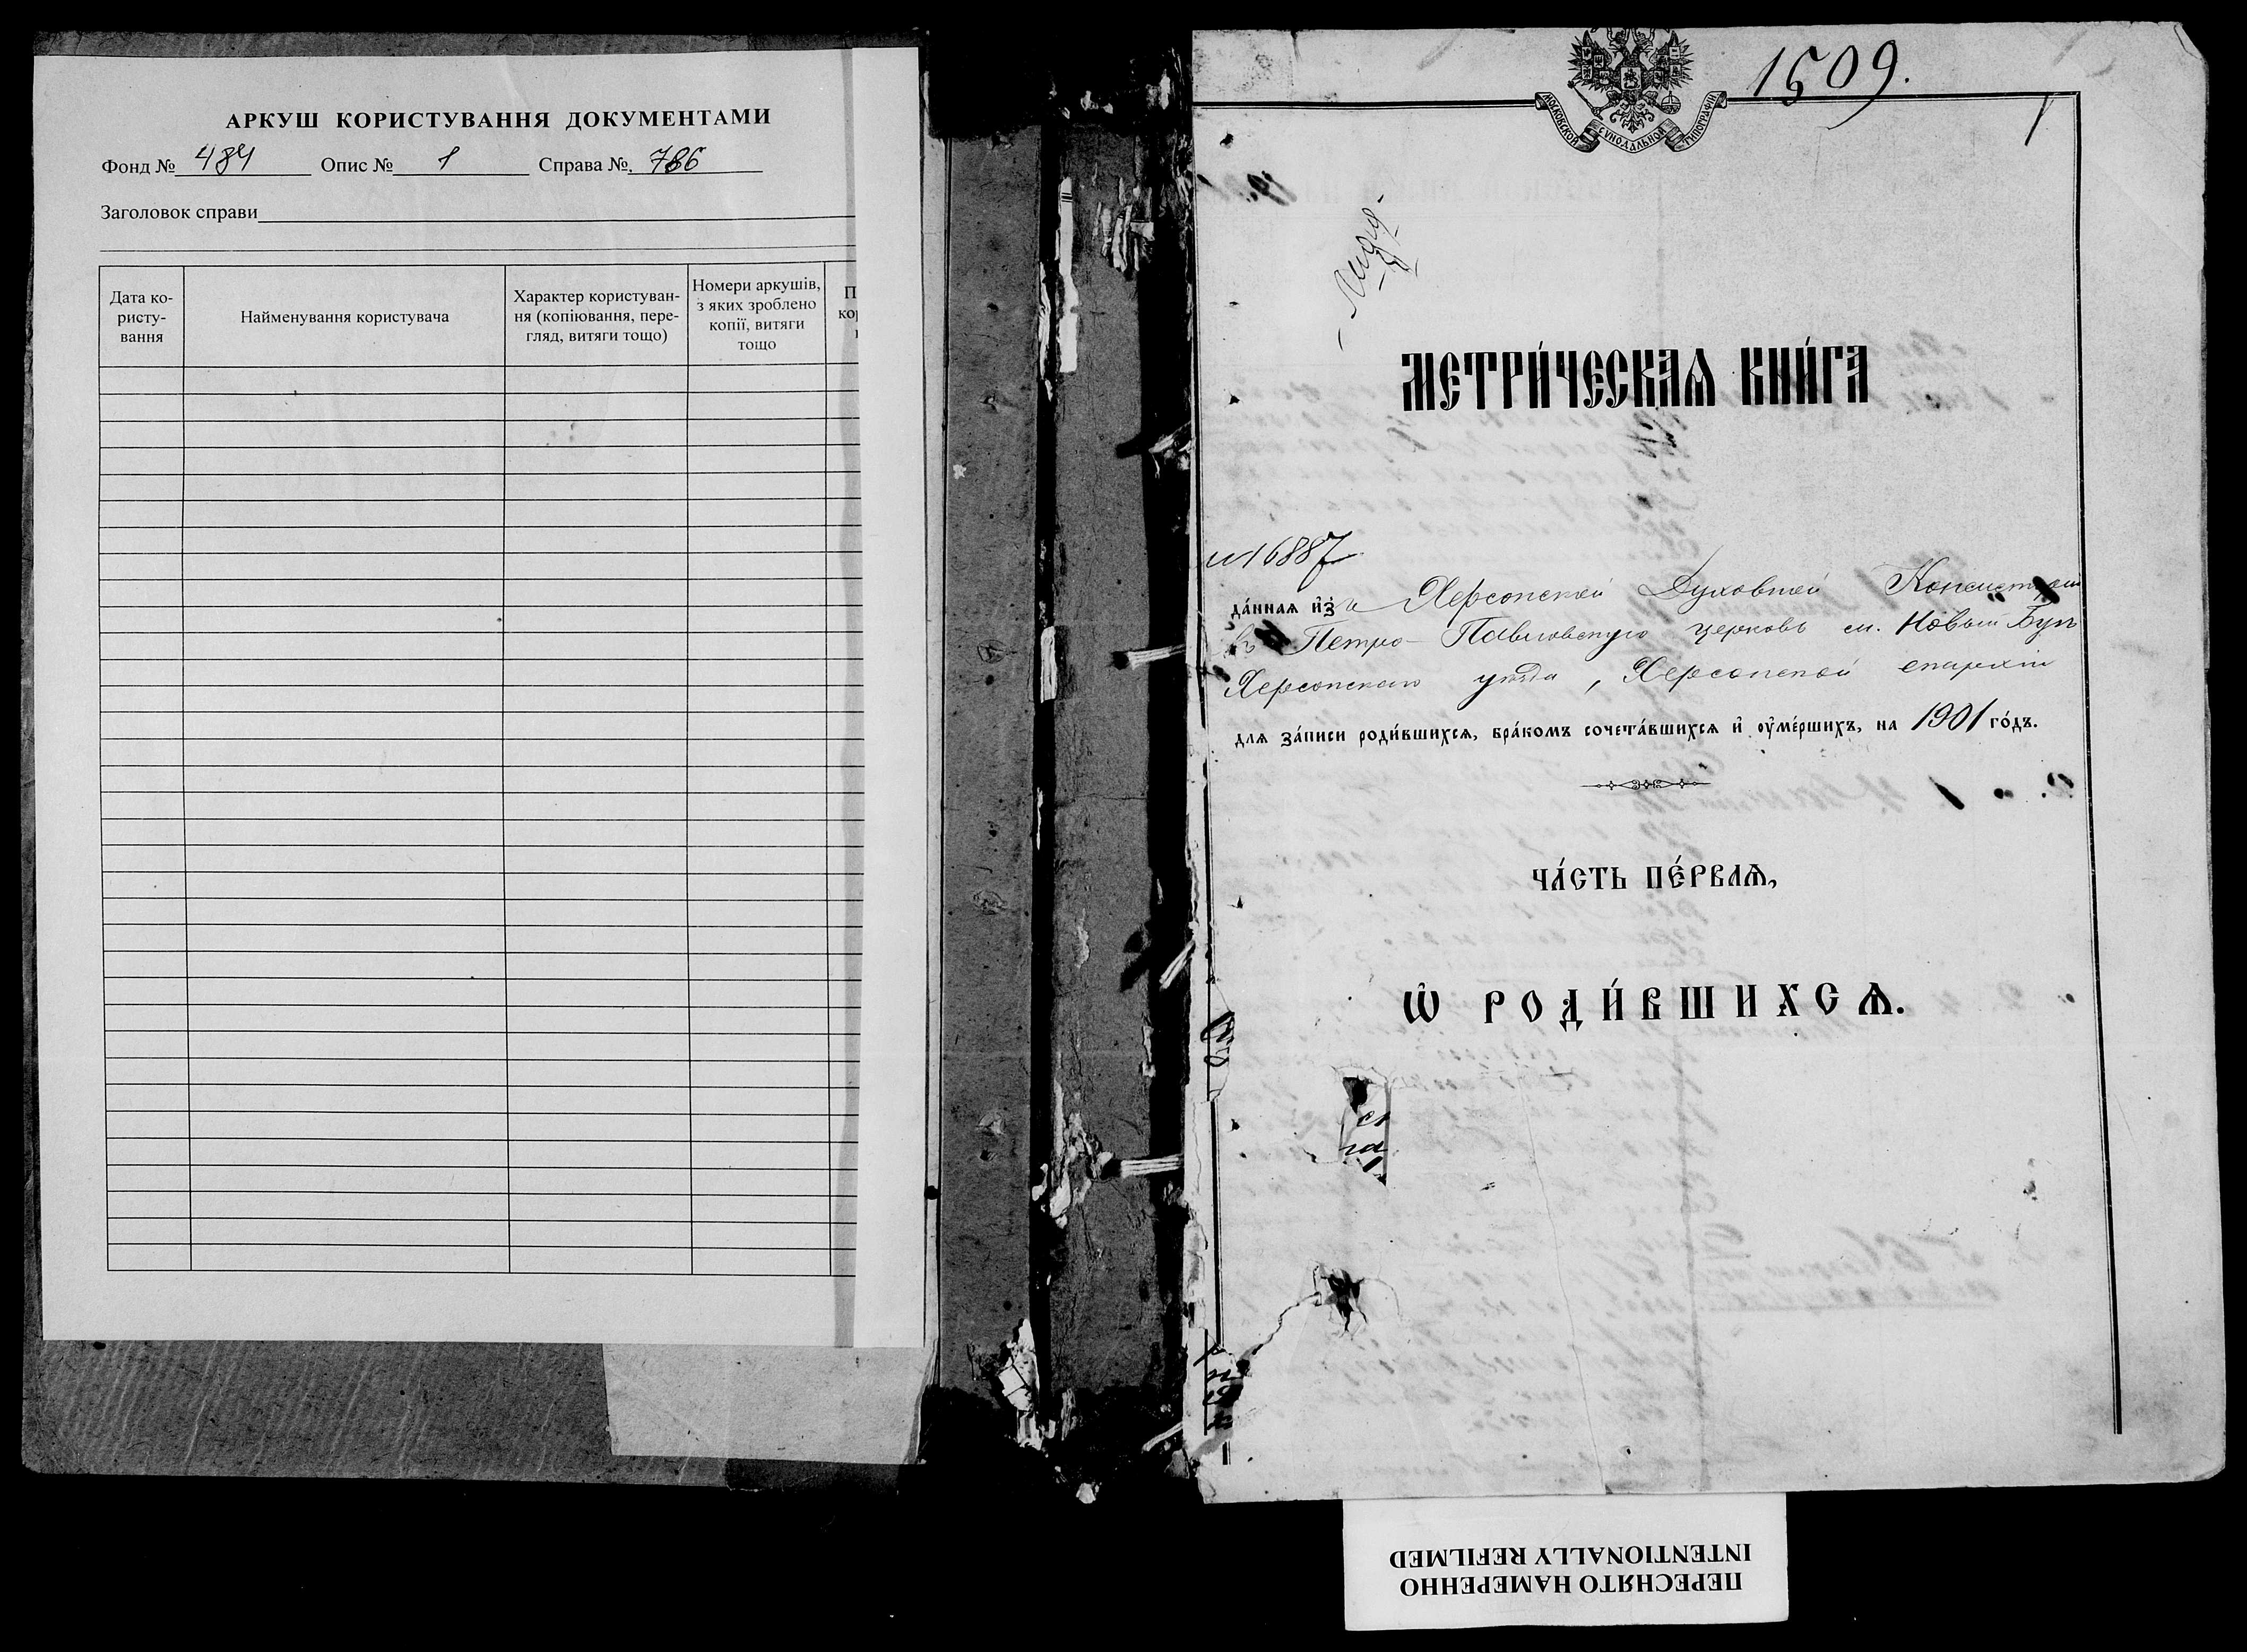 АРКУШ КОРИСТУВАННЯ ДОКУМЕНТАМИ
Фонд № 484 Опис № 1 Справа №. 786
Заголовок справи
Дата ко-
ристу-
вання
Найменування користувача
Характер користуван-
ня (копіювання, пере-
гляд, витяги тощо)
Номери аркушів,
з яких зроблено
копії, витяги
тощо
1509.
1
МОСКОВСКОЙ СѴНОДАЛЬНОЙ ТИПОГРАФІИ
МЕТРИ́ЧЕСКАѦ КНИ́ГА
16887
да́ннаѧ и҆зъ Херсонской Духовной Консисторіи
въ Петро-Павловскую церковь м. Новый Бугъ
Херсонскаго уѣзда, Херсонской епархіи
длѧ за́писи роди́вшихсѧ, бра́комъ сочета́вшихсѧ и҆ оу҆ме́ршихъ, на 1901 го́дъ.
ЧА́СТЬ ПЕ́РВАѦ,
Ѡ҆ РОДИ́ВШИХСѦ.
ПЕРЕСНЯТО НАМЕРЕННО
INTENTIONALLY REFILMED